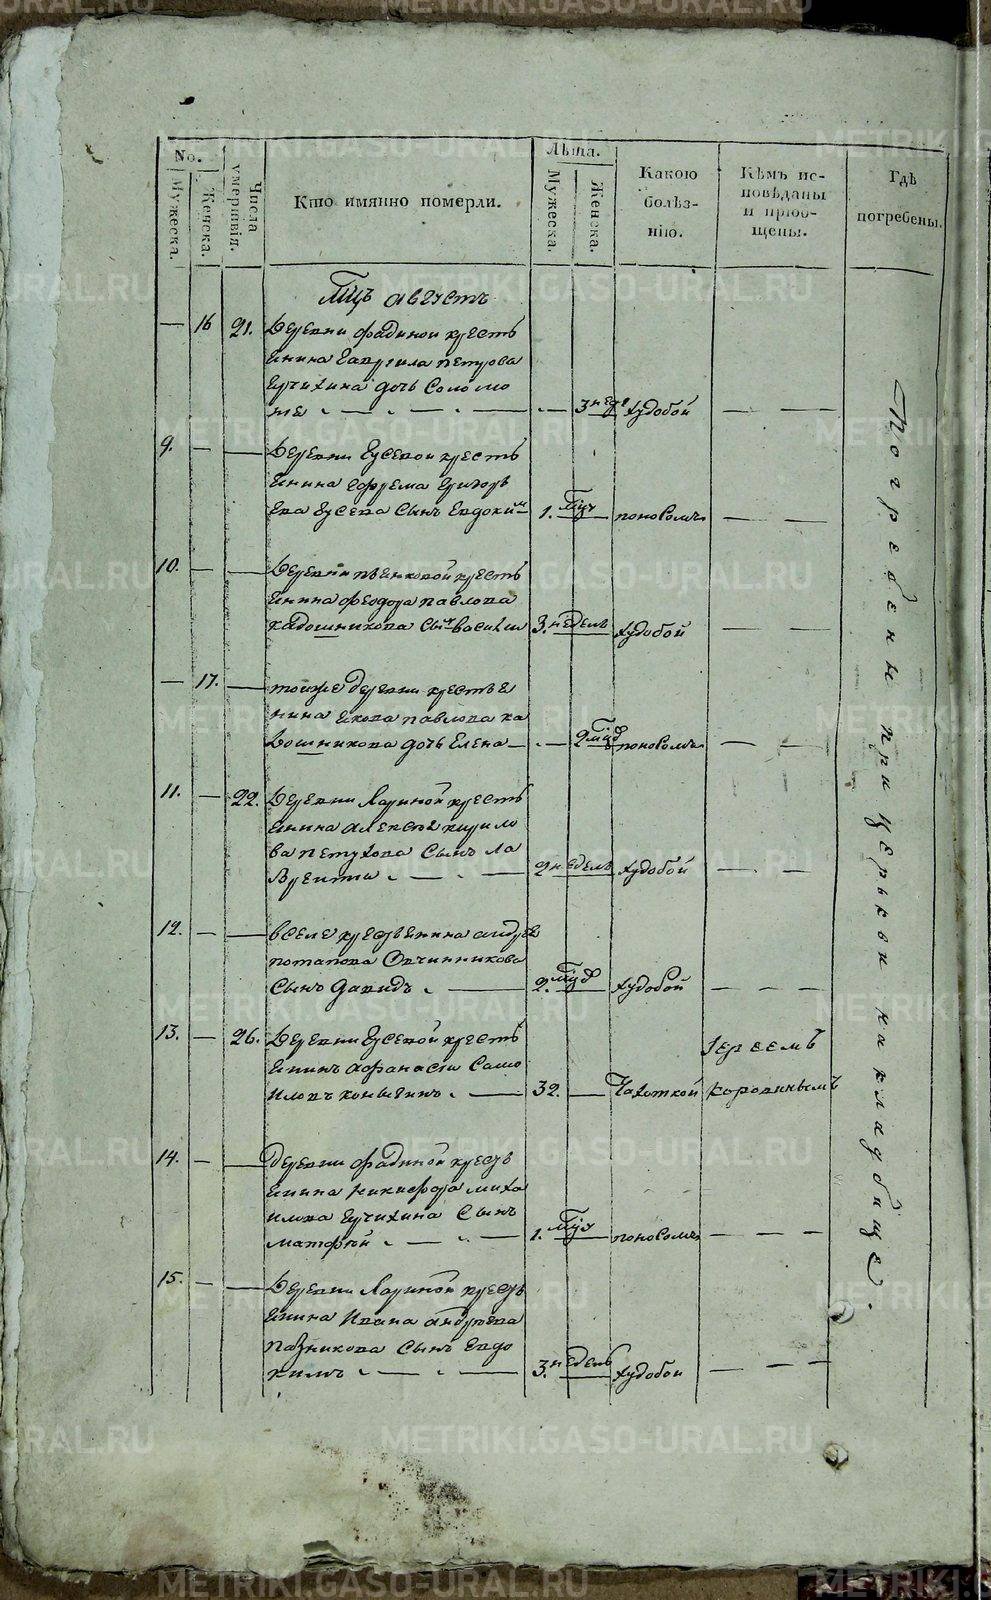 No.
Мужеска.
Женска.
Числа умершвiи.
Кто имянно померли.
Лѣта.
Мужеска.
Женска.
Какою болѣз-
нiю.
Кѣмъ ис-
повѣданы
и прiоб-
щены.
Гдѣ
погребены.
Мцъ августъ
— 16 21. Деревни Фадиной кресть
янина Гаврила петрова
дочь Соломо
ние — — — 3 неде худобой — —
9. — — Деревни Гусевой кресть
янина Ефрема григорь
ева Гусева сынъ Евдоким 1. Мцъ поносомъ — —
10. — — Деревни пѣнковой кресть
янина феодора павлова
кадошникова сынъ васили 3. недель худобой — —
— 17. — тойже деревни крестья
нина якова павлова ка
дошникова дочь Елена — 2 мцъ поносомъ — —
11. — 22. Деревни Лариной кресть
янина алексѣя кирило
ва петухова сынъ Ла
врентiи — — 2 недель худобой — —
12. — — вселе крестьянина андрея
потапова Овчинникова
сынъ давидъ — 2. мцъ худобой — — —
13. — 26. Деревни Гусевой кресть
янинъ афанасiи Само
иловъ — 32. — Чахоткой
Iереемъ
коровинымъ
14. — — деревни фадиной кресть
янина никифора миха
илова сынъ
матфѣй — — 1. Мцъ поносомъ — — —
15. — — Деревни Лариной кресть
янина Ивана андреева
пазникова сынъ евдо
кимъ — — — 3. недель худобой — — —
Погребены при церькви на кладбище.
METRIKI.GASO-URAL.RU